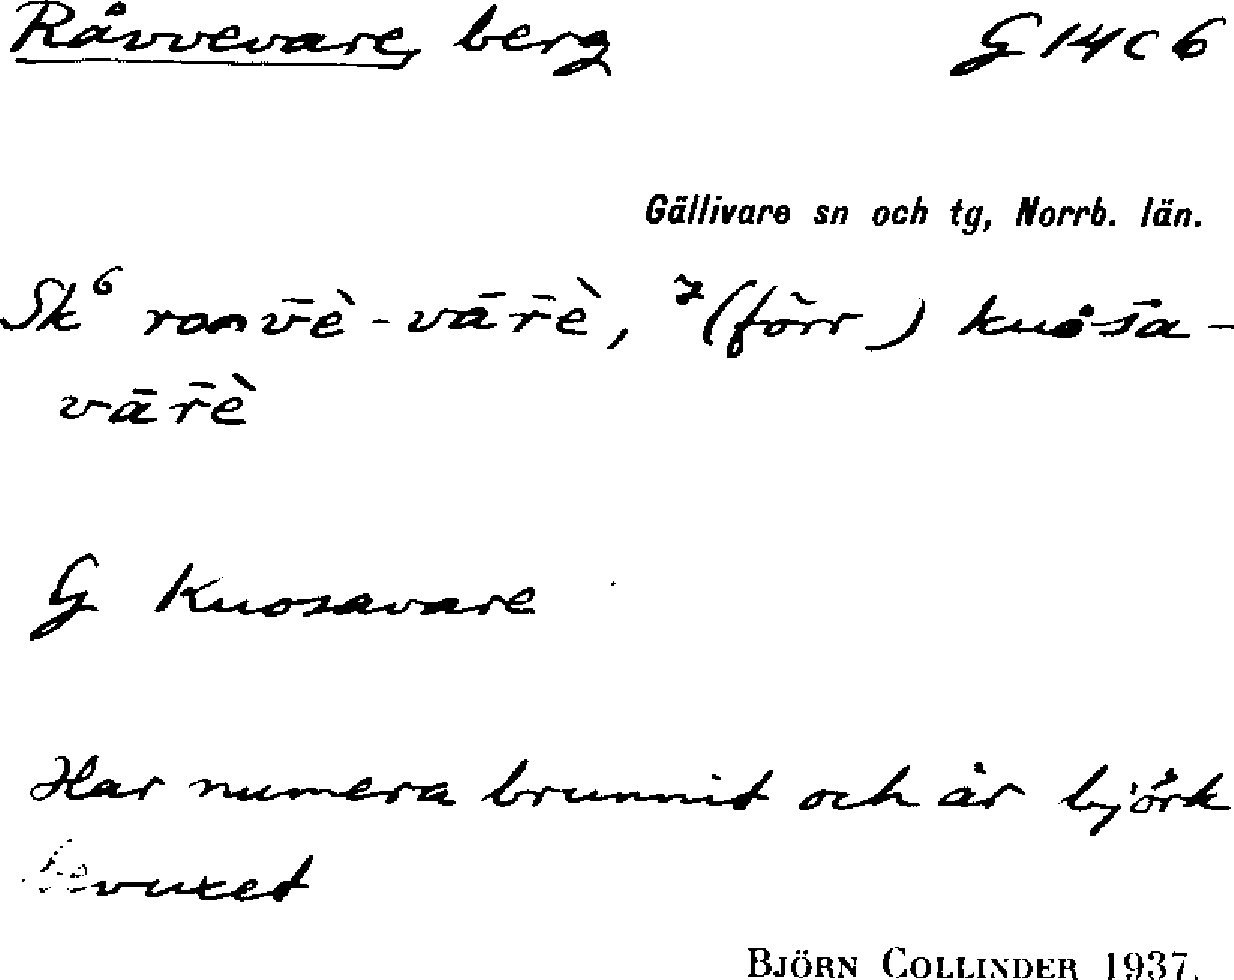 Råvvevare, berg G 14 C 6
Gällivare sn och tg, Norrb. län.
Sk⁶ roɑv̄è - vār̄è, ⁷(förr) kuås̄a -
vār̄è
G Kuosavare
Har numera brunnit och är björk
bevuxet
BJÖRN COLLINDER 1937.